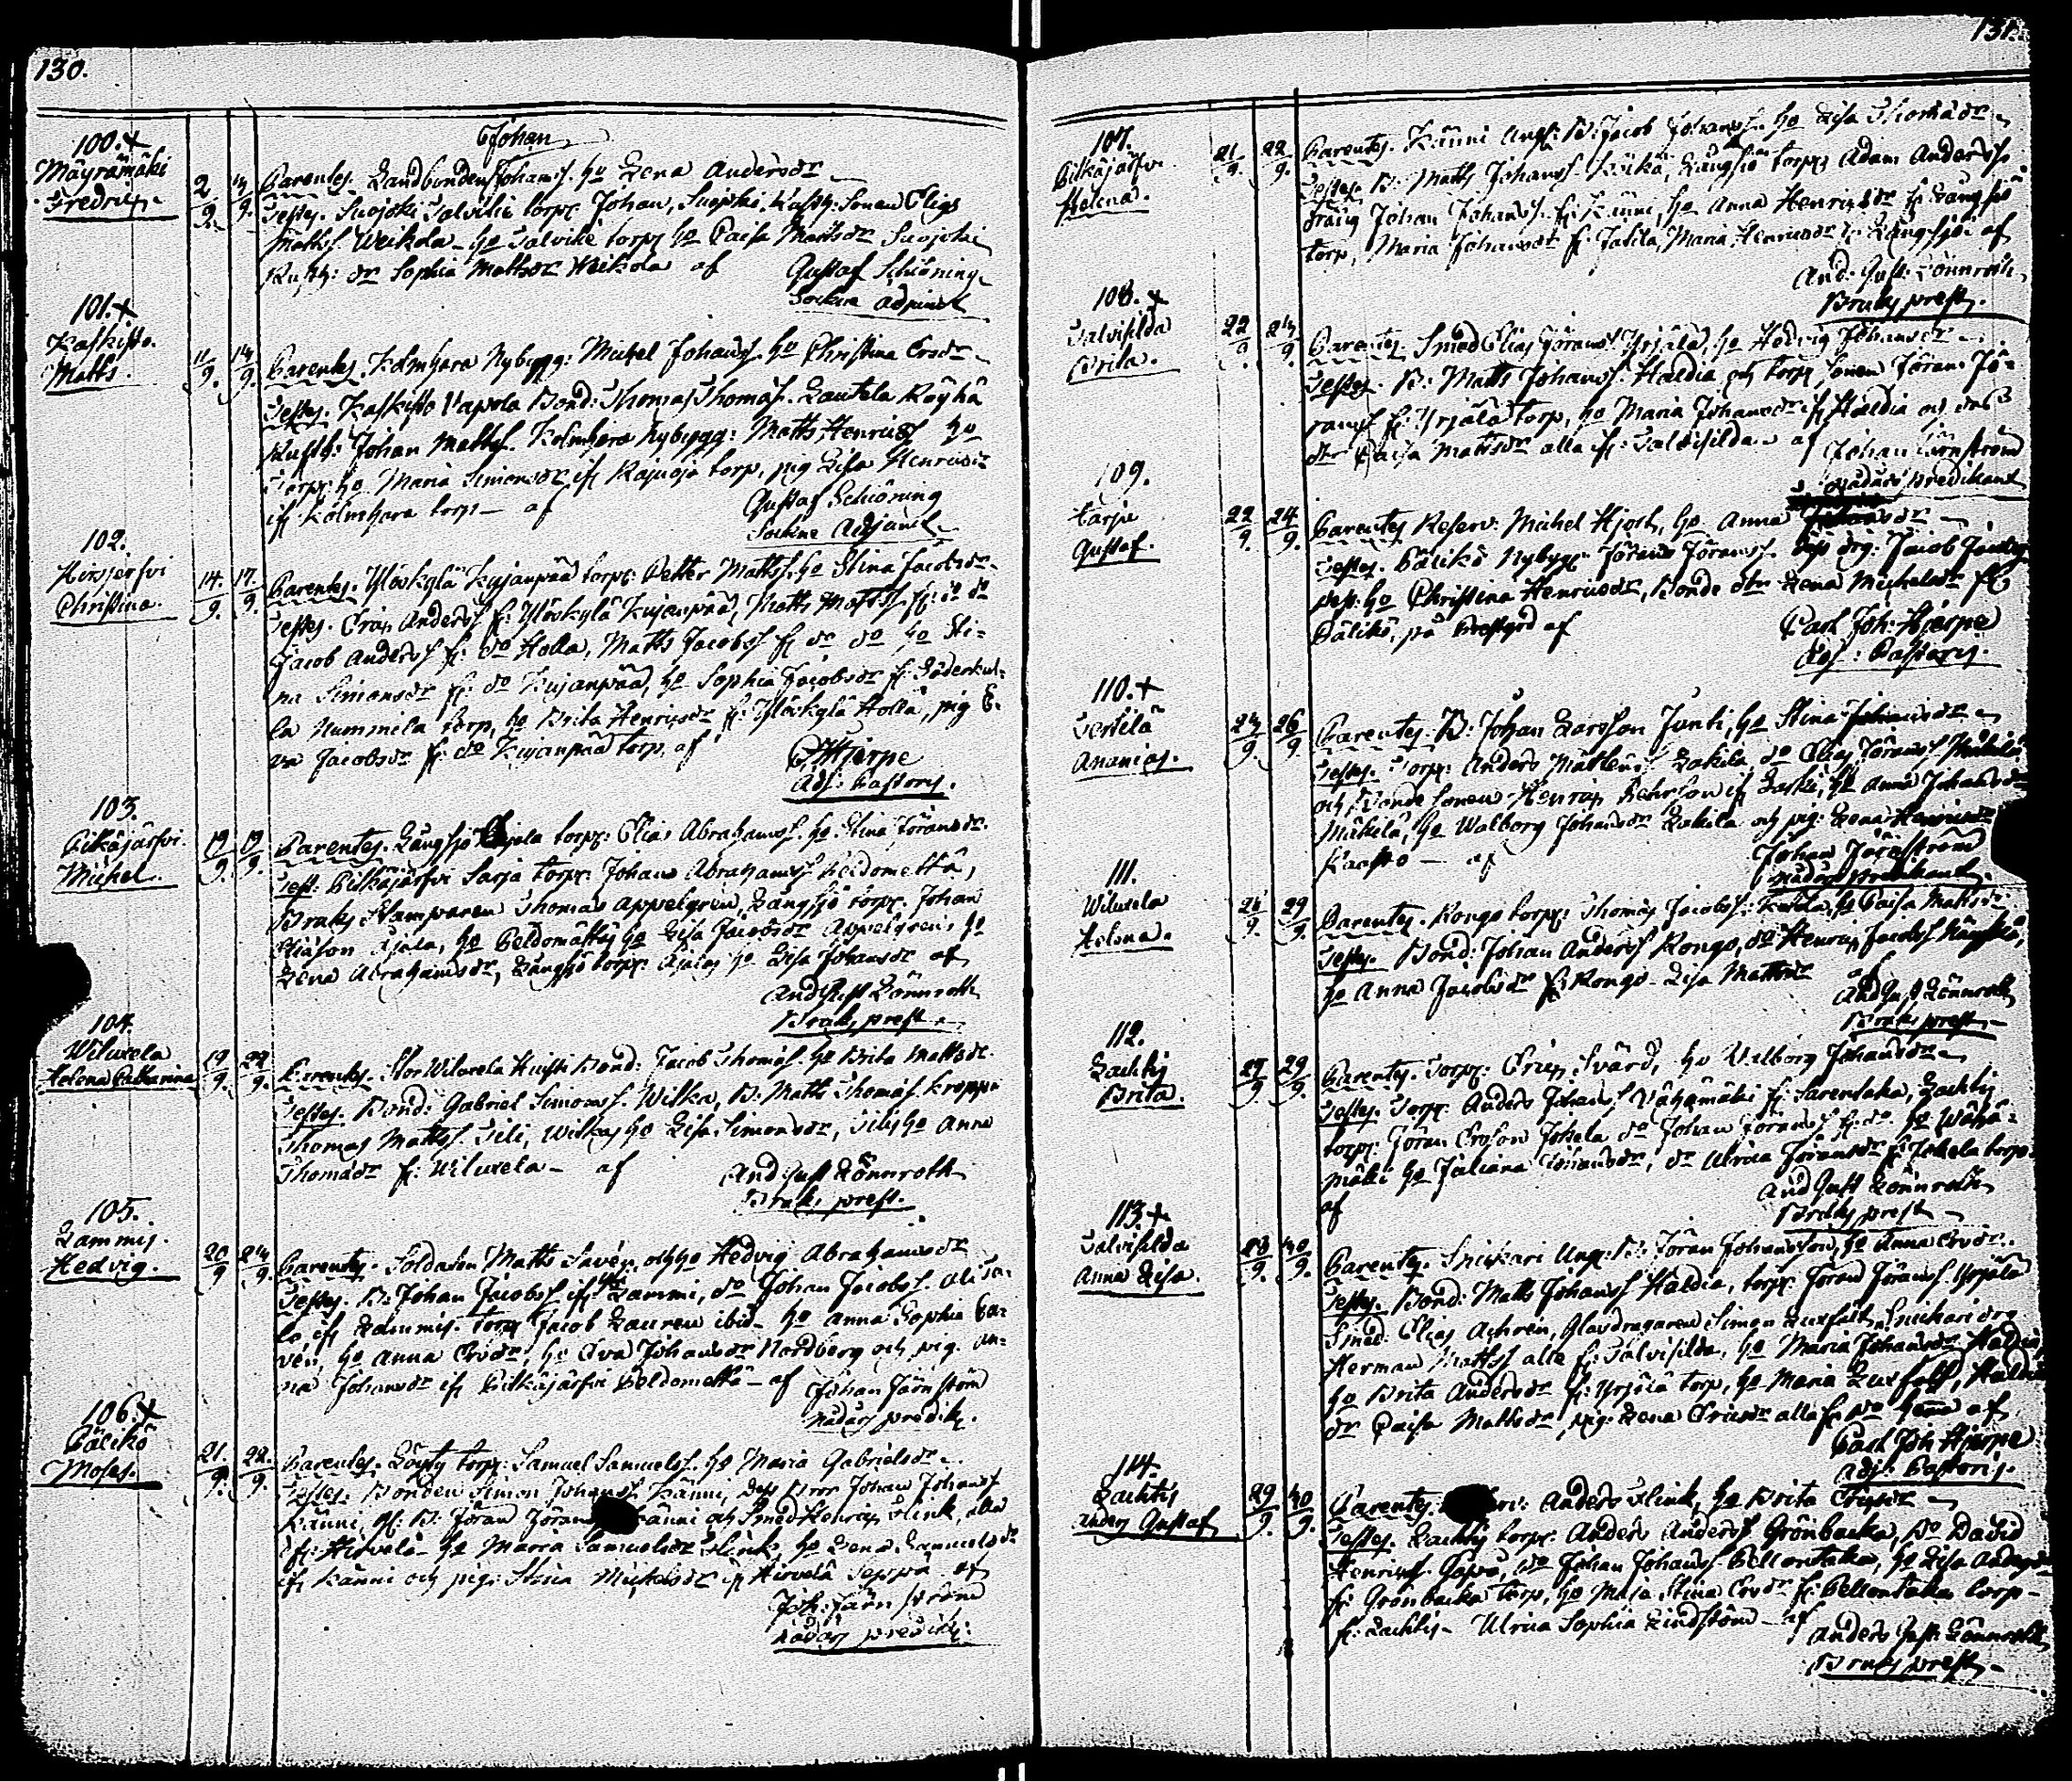 130.
100. +
Mäyrämäki
Fredric.
2/9. 14/9.
Johan
Parentes. Landbonden Johanss. ho Lena Andersdr
Testes. Suojoki Salvike torp: Johan, Suojoki Rusth: Sonen Elias
Matss. Weikola - ho Salvike torp ho Caisa Mattsdr Suojoki
Rusth: dr Sophia Mattsdr Weikola af Gustaf Schöning
Sockne Adjunct
101. +
Kaskisto.
Matts.
11/9. 14/9.
Parentes. Kolmhara Nybygg: Michel Johanss. ho Christina Ersdr
Testes. Kaskisto Vapola Bond: Thomas Thomass. Lautela Röyhä
Rusth: Johan Mattss. Kolmhara Nybygg: Matts Henricss ho
Torp: ho Maria Simonsdr ifr Rajuoja torp, pig Lisa Henricsdr
ifr Kolmhara torp - af Gustaf Schöning
Sockne Adjunct
102.
Hirsjerfvi
Christina.
14./9. 17./9.
Parentes. Ylöskylä Kujanpää torp: Petter Mattss. ho Stina Jacobsdr
Testes. Eric Anderss fr: Ylöskylä Kujanpää, Matts Mattss fr: do do
Jacob Anderss fr: do Holla, Matts Jacobss fr do do ho Sti-
na Simonsdr fr: do Kujanpää, ho Sophia Jacobsdr fr: Söderkul-
la Nummila torp, ho Brita Henricsdr fr: Ylöskylä Holla, pig E-
va Jacobsdr fr: do Kujanpää torp, af
C. Hjerpe
Adj: Pastoris.
103.
Pitkäjärfvi.
Michel.
19/9. 19/9.
Parentes. Långsjö Ajala torp: Elias Abrahamss. ho Stina Göransdr.
Test: Pitkäjärfvi Sarja torp: Johan Abrahamss Peldomettä,
Bruks Stamparen Thomas Appelgren, Långsjö torp: Johan
Eliasson Ajala, ho Peldomättäs ho Lisa Jacobsdr Appelgren, ho
Lena Abrahamsdr, Långsjö torp: Ajalas ho Lisa Johansdr af
And Gust Lönnroth
Bruks prest.
104.
Wiluxela
Helena Catharina
19/9. 22/9.
Parentes. Stor Wiluxela Huisti Bond: Jacob Thomass. ho Brita Mattsdr.
Testes. Bond: Gabriel Simonss. Wilka, B: Matts Thomass. Kroppo
Thomas Mattss. Sili, Wilkas ho Lisa Simonsdr, Silis ho Anna
Thomasdr fr: Wiluxela - af And Gust Lönnroth
Bruks prest.
105.
Lammis.
Hedvig.
20/9 24/9.
Parentes. Soldaten Matts Savén och ho Hedvig Abrahamsdr
Testes. B: Johan Jacobss ifr Lammi, do Johan Jacobss. Alisa-
lo ifr Lammis. torp Jacob Lauren ibid - ho Anna Sophia Sa-
vén, ho Anna Ersdr, ho Eva Johansdr Nordberg och pig. An-
na Johansdr ifr Pitkäjärfvi Peldomettä - af Johan Järnström
Nådårs predik.
106. +
Pälikö
Moses.
21./9. 22./9.
Parentes. Löyty torp: Samuel Samuelss. ho Maria Gabrielsdr
Testes. Bonden Simon Johanss Känni, dess Bror Johan Johanss
Känni, B: Göran Görans Känni och Smed Henric Flink, alla
ifr: Hirvelä - ho Maria Samuelsdr Flink, ho Lena Samuelsdr
ifr Känni och pig: Stina Michelsdr ifr Hirvelä Seppä af
Joh: Järnström
Nådårs predik:
131.
107.
Pitkäjärfvi
Helena.
21/9. 22/9.
Parentes. Känni Ung: B: Jacob Johanss. ho Lisa Thomasdr
Testes. B: Matts Johanss. Långsjö torp: Adam Anderss.
dräng Johan Johanss. fr: Känni, ho Anna Henricsdr fr Långsjö
torp, Maria Johansdr fr Jakila, Maria Henricsdr fr Långsjö: af
And: Gust: Lönnroth
Bruks prest.
108. +
Salvisilda
Brita.
22/9 24/9.
Parentes. Smed Elias Göranss Yrjälä, ho Hedvig Johansdr
Testes. B: Matts Johanss. Haldia, och torp. sonen Göran Gö-
ranss fr Yrjälä torp, ho Maria Johansdr ifr Haldia och dess
dr Caisa Mattsdr alla ifr: Salvisilda. af Johan Järnström
Nådårs predikant
109.
Harju
Gustaf.
22/9. 24/9.
Parentes Reserv: Michel Hjort, ho Anna
Testes. Pälikö Nybygg. Göran Göranss. drg: Jacob
ho Christina Henricsdr, Bonde dtr Lena Michelsdr fr
Pälikö, på Prestgrd af
Carl Joh: Hjerpe
Adj: Pastoris.
110. +
Sertilä
Ananias.
24/9. 26/9
Parentes. B: Johan Larsson Junti, ho Stina Johansdr
Testes. Torp: Anders Mattson Lakila, do Elias Görans Mäkilä
och Bonde sonen Henric ifr Laski, ho Anna Johansdr
Mäkilä, ho Walborg Johansdr Lakila och pig: Lena Henricsdr
Kaasto - af
Johan Järnström
Nådårs Predikant.
111.
Wiluxela
Helena.
26/9. 29/9
Parentes. Kongo torp: Thomas Jacobss: ho Caisa Mattsdr
Testes. Bond: Johan Anderss Kongo, do Henric Jacobss
ho Anna Jacobsdr fr Kongo - Lisa Mattsdr
af
And Gust Lönnroth
Bruks prest
112.
Lachtis
Brita.
27/9 29/9
Parentes. Torp: Eric Svärd, ho Walborg Johansdr
Testes. Torp: Anders Johanss Vähämäki fr: Sarentaka, Lachtis
torp: Göran Ersson Jokela do Johan Göranss fr: do. ho Wähä-
mäki ho Juliana Johansdr, do Ulrica Göransdr fr: Jokela torp.
af And Gust Lönnroth
Bruks prest
113. +
Salvisilda
Anna Lisa.
28/9. 30/9.
Parentes. Snickari Ung: B: Göran Johansson, ho Anna Ersdr.
Testes. Bond: Matts Johanss Haldia, torp. Göran Göranss. Yrjälä
Smed: Elias Achrén, Glasdragaren Simon Luxfält, Snickari drg
Herman Mattss alla fr: Salvisilda, ho Maria Johansdr Haldia
ho Brita Andersdr fr: Yrjälä torp, ho Maria Luxfält, Haldia
dr Caisa Mattsdr, pig: Lena Ericsdr alla fr do Hemn af
Carl Joh Hjerpe
Adj: Pastoris.
114.
Lachtis
Anders Gustaf
29/9. 30/9.
Parentes. Anders Flink, ho Brita Ericsdr
Testes. Lachtis torp: Anders Anderss Grönbacka, do David
Henricss. do Johan Johanss Pellontaka, ho Lisa Andersdr
fr: Grönbacka torp, ho Maja Stina Ersdr fr: Pellontaka torp -
fr: Lachtis - Ulrica Sophia Lindström - af
Anders Gust: Lönnroth
Bruks prest